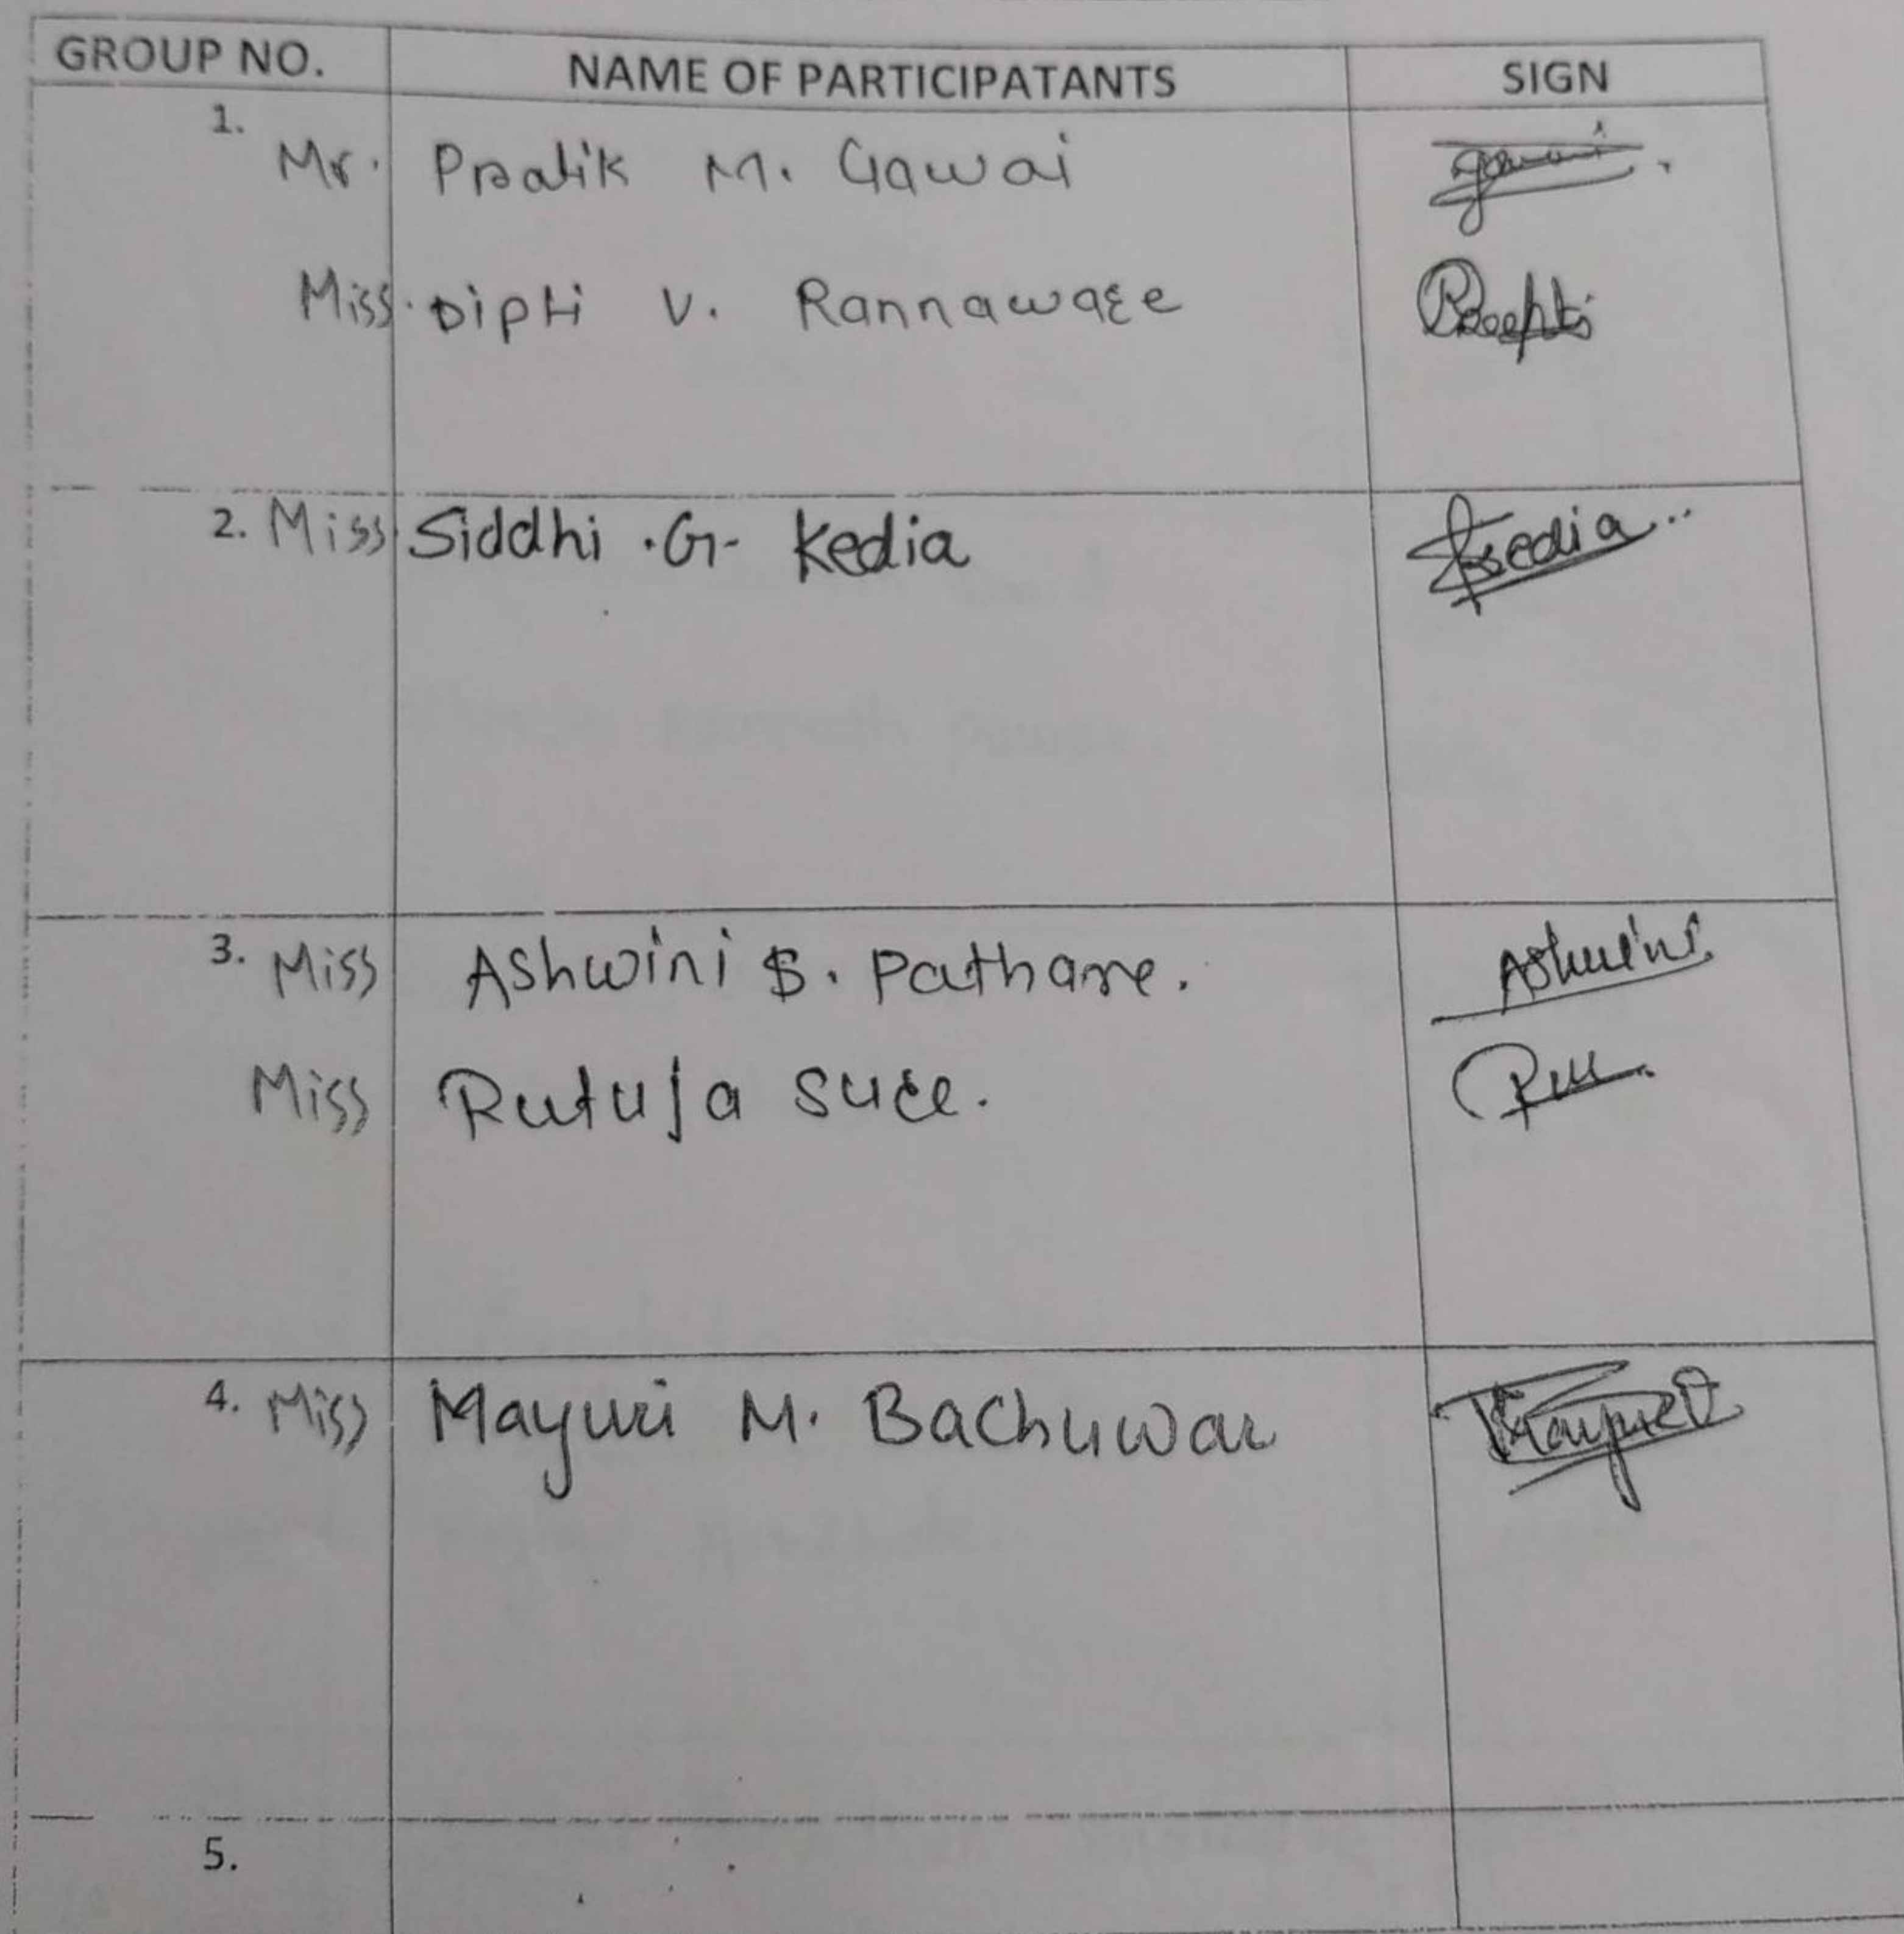 GROUP NO. NAME OF PARTICIPATANTS SIGN
1. Mr. Pratik M. Gawai
Miss. Dipti V. Rannaware
2. Miss Siddhi .G. Kedia Kedia
3. Miss Ashwini S. Pathare. Ashwini
Miss Rutuja Sure.
4. Miss Mayuri M. Bachuwar
5.